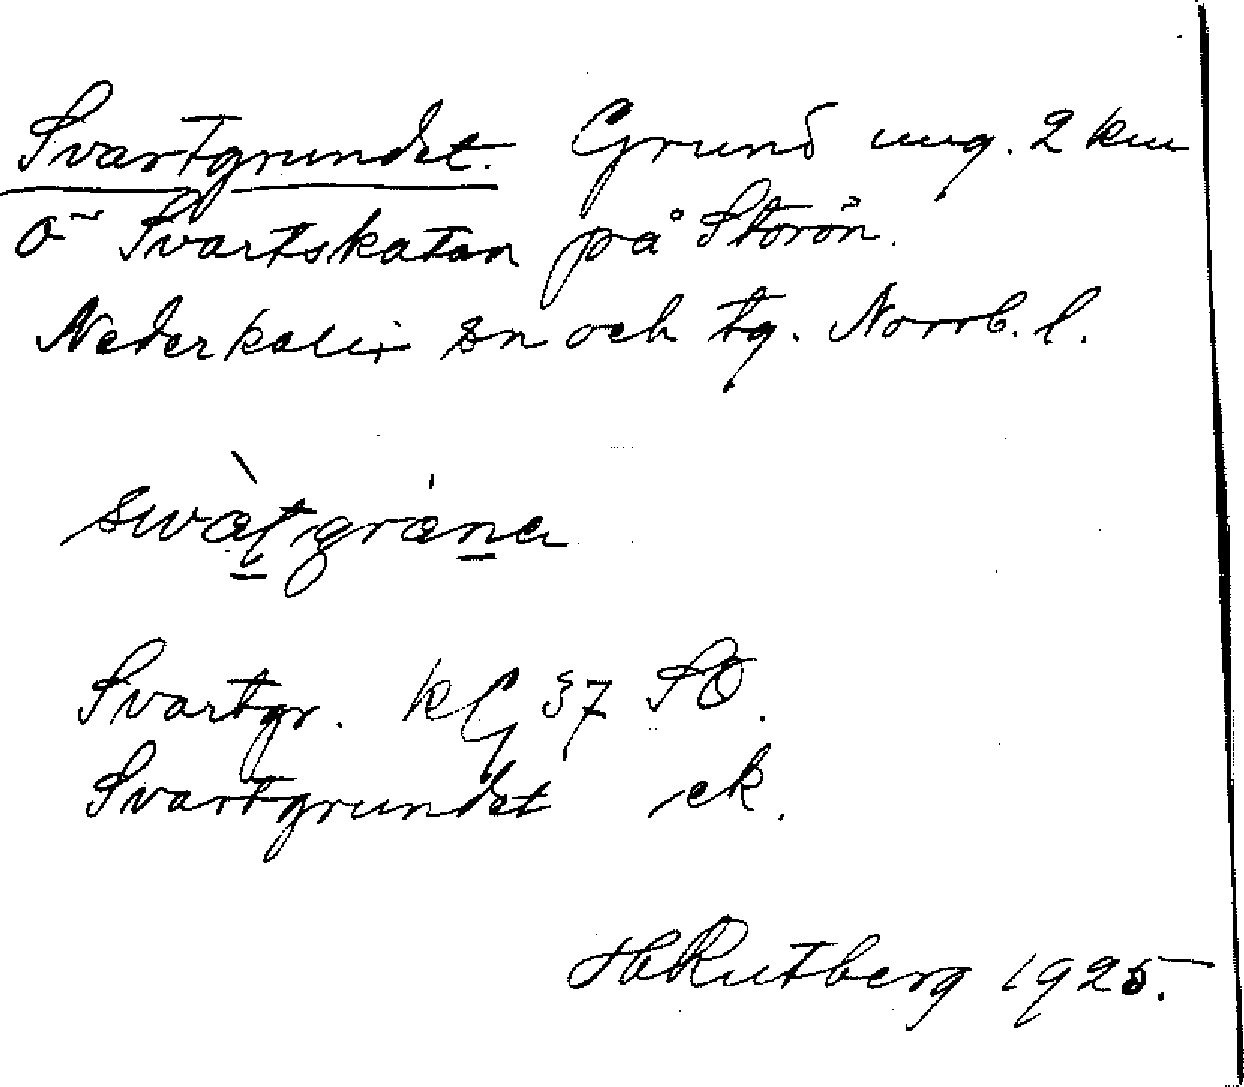 Svartgrundet. Grund ung. 2 km
Ö Svartskatan på Storön.
Nederkalix sn och tg. Norrb. l.
Svartgr. kG 37 SO.
Svartgrundet ek.
H Rutberg 1925.